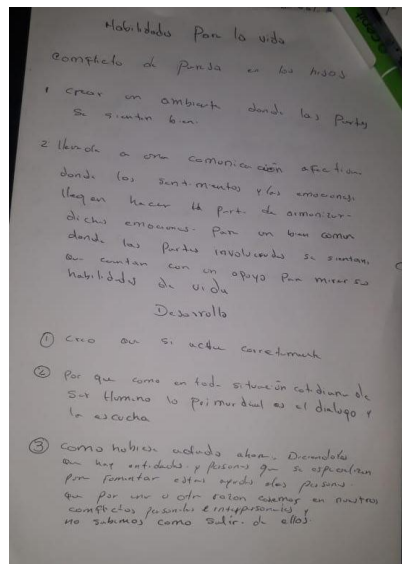 Habilidades Para la vida
Conflicto de Pareja en los hijos
1 crear un ambiente donde las Partes
se sientan bien.
2 llevado a una comunicación afectiva
donde los sentimientos y las emociones
llegan hacer la parte de
dichas emociones. Para un bien comun
donde las Partes involucradas se sientan
que cuentan con un apoyo Para mirar sus
habilidades de vida
Desarrollo
① creo que si actue correctamente
② Por que como en toda situación cotidiana de
Ser Humano lo primordial es el dialogo y
la escucha
③ como hubiese actuado ahora. Diciendoles
que hay entidades y personas que se especializan
por fomentar estas ayudas alas personas
que por una u otra razon caemos en nuestros
conflictos personales e interpersonales y
no sabemos como salir de ellos.